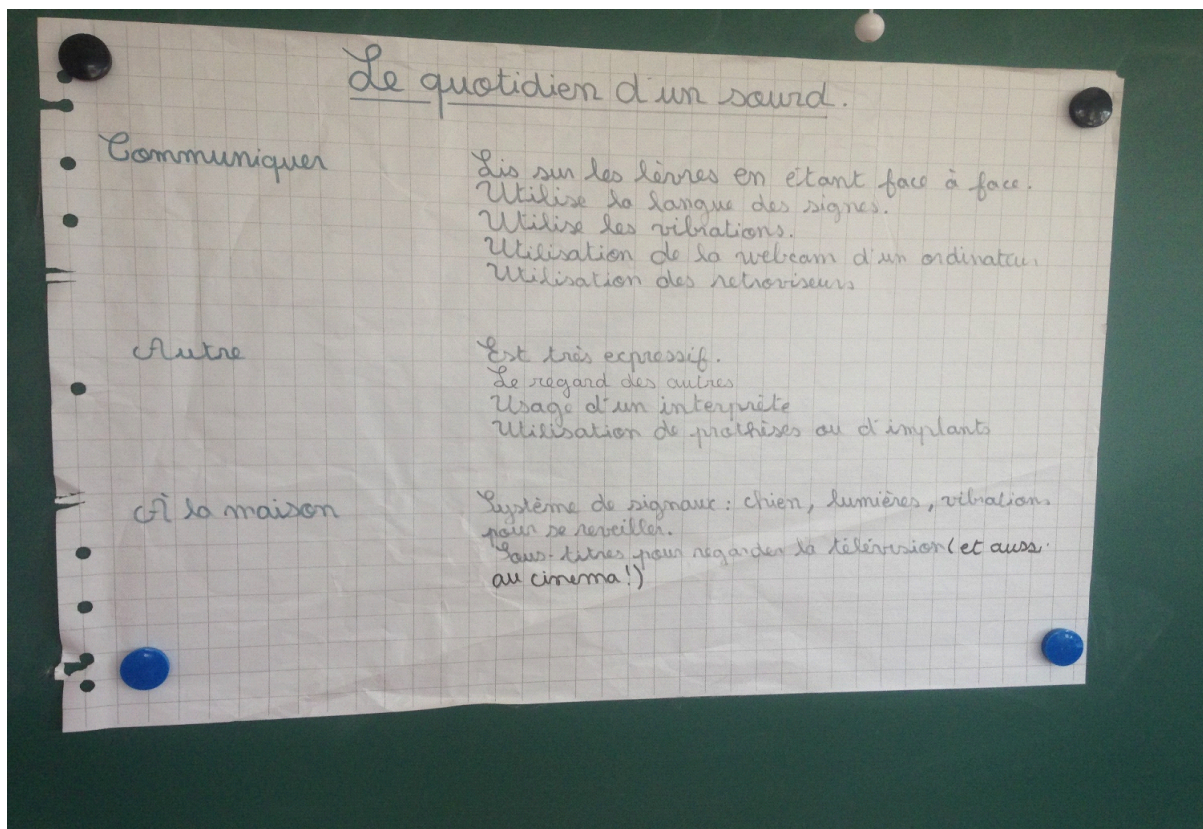 Le quotidien d'un sourd.
Communiquer
Lis sur les lèvres en étant face à face.
Utilise la langue des signes.
Utilise les vibrations.
Utilisation de la webcam d'un ordinateur
Utilisation des retroviseurs
Autre
Est très expressif.
Le regard des autres
Usage d'un interprète
Utilisation de prothèses ou d'implants
À la maison
Système de signaux : chien, lumières, vibrations
pour se reveiller.
Sous-titres pour regarder la télévision (et aussi
au cinema !)